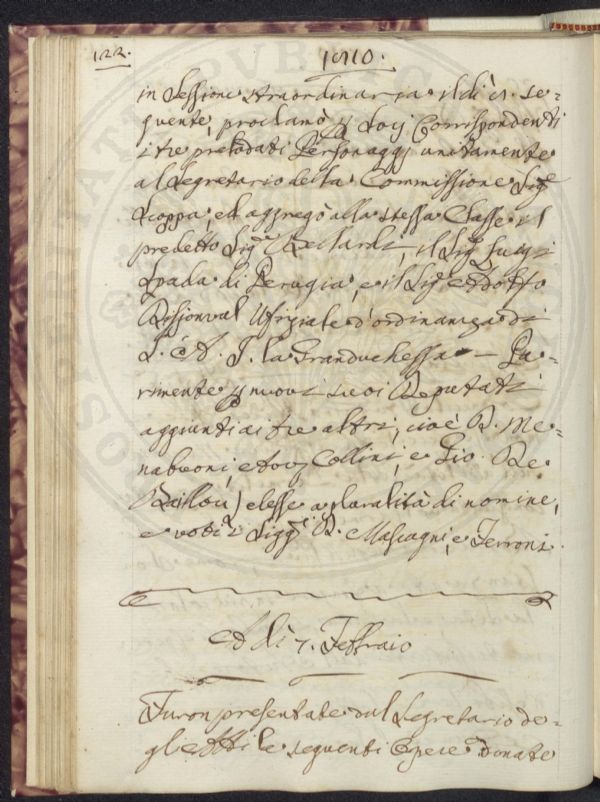 122.
1810.
in Sessione straordinaria il dì 21. se=
guente, proclamò p Socj Corrispondenti
i tre prelodati Personaggj unitamente
al Segretario della Commissione Sig.e
Scoppa, ed aggregò alla stessa Classe il
predetto Sig.e Bellardi, il Sig.e Luigi
Spada di Perugia, e il Sig.e Adolfo
Ufiziale d'ordinanza di
S. A. I. la Granduchessa — Pa=
rimente p nuovi suoi Deputati
aggiunti ai tre altri, cioè D. Me=
nabuoni, Avv. Collini, e Gio. De
Baillou) elesse a pluralità di nomine,
e voti i Sigg.i D. Mascagni, e Ferroni.
A dì 7. Febbraio
Furon presentate dal Segretario de=
gli Atti le seguenti Opere donate